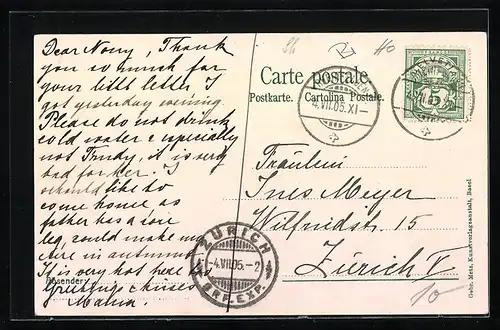 Dear Nony, Thank
you so much for
your little letter. I
got yesterday evening.
Please do not drink
cold water especially
not Trudy, it is very
bad for her. I
should like to
come home as
father has a sore
leg, could make my
in autumn.
It is very hot here too
Greetings & kisses
Mama.
Absender:
Carte postale.
Postkarte. Cartolina Postale.
4.VII.05.XI-
HELVETIA
5
Fräulein
Ines Meyer
Wilfriedstr. 15
Zürich V.
ZÜRICH
-4.VII.05.-2
BRF.EXP.
Gebr. Metz, Kunstverlagsanstalt, Basel
10